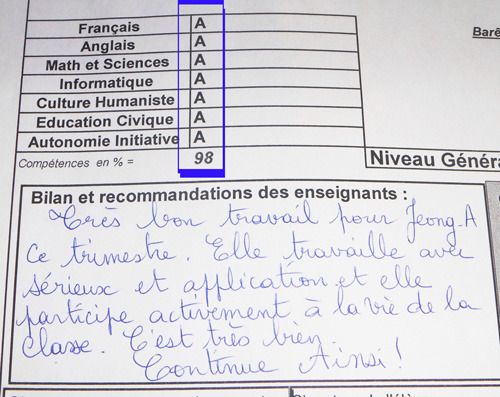 Barê
Français A
Anglais A
Math et Sciences A
Informatique A
Culture Humaniste A
Education Civique A
Autonomie Initiative A
Compétences en % = 98
Niveau Généra
Bilan et recommandations des enseignants :
Très bon travail pour Jeong-A
ce trimestre. Elle travaille avec
sérieux et application et elle
participe activement à la vie de la
classe. C'est très bien.
Continue Ainsi !